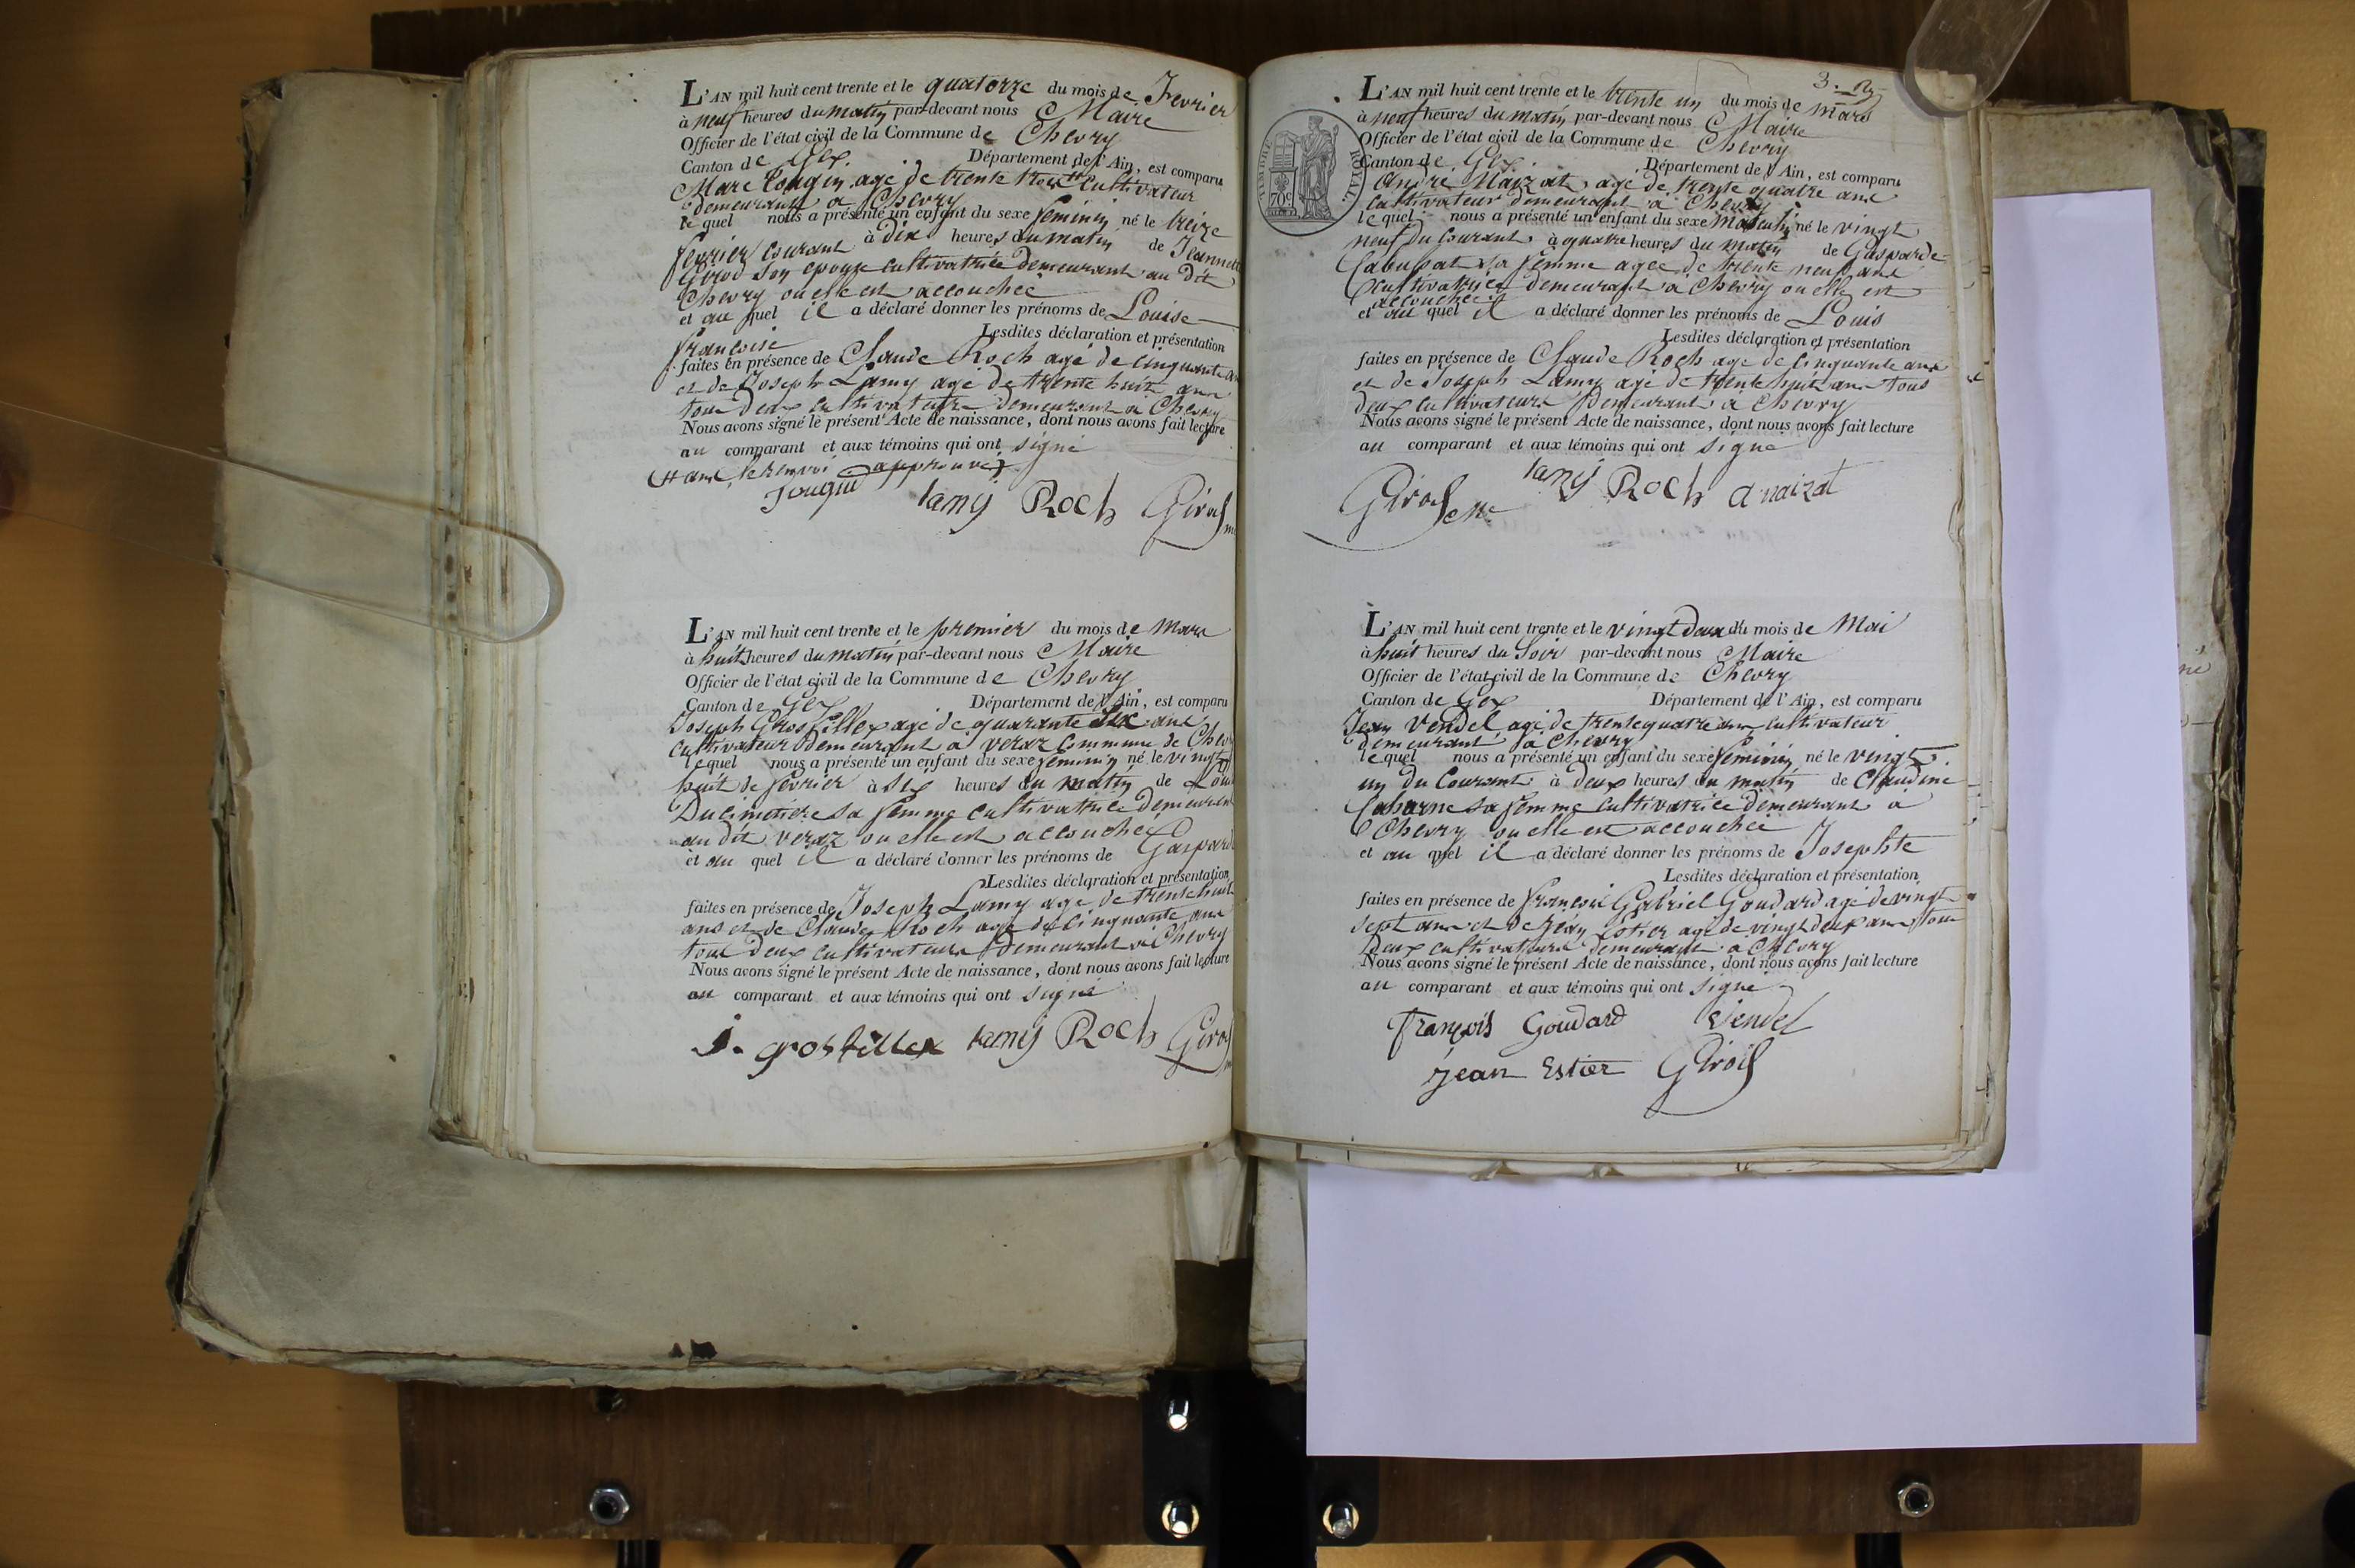 L'AN mil huit cent trente et le quatorze du mois de Fevrier
à neuf heures du matin par-devant nous Maire
Officier de l'état civil de la Commune de Chevry
Canton de Gex. Département de l'Ain, est comparu
Marc agé de trente trois cultivateur
demeurant a Chevry
le quel nous a présenté un enfant du sexe feminin né le treize
fevrier courant à dix heures du matin de Jeannette
Girod son epouse cultivatrice demeurant au dit
Chevry ou elle est accouchée
et au quel il a déclaré donner les prénoms de Louise
francoise Lesdites déclaration et présentation
faites en présence de Claude Roch agé de cinquante
et de Joseph Lamy agé de trente huit ans
tous deux cultivateurs demeurant a Chevry
Nous avons signé le présent Acte de naissance, dont nous avons fait lecture
au comparant et aux témoins qui ont signé
ans le renvoi approuvé
Lamy Roch Girod
L'AN mil huit cent trente et le premier du mois de Mars
à huit heures du matin par-devant nous Maire
Officier de l'état civil de la Commune de Chevry
Canton de Gex Département de l'Ain, est comparu
Joseph Grosfillex agé de quarante six ans
cultivateur demeurant a veraz commune de
le quel nous a présenté un enfant du sexe feminin né le vingt
huit de fevrier à six heures du matin de
Ducimetiere sa femme cultivatrice
au dit veraz ou elle est accouchée
et au quel il a déclaré donner les prénoms de
Lesdites déclaration et présentation
faites en présence de Joseph Lamy agé de trente huit
ans et de Claude Roch agé de cinquante ans
tous deux cultivateurs demeurant a Chevry
Nous avons signé le présent Acte de naissance, dont nous avons fait lecture
au comparant et aux témoins qui ont signé
j. grosfillex Lamy Roch Girod
3.
L'AN mil huit cent trente et le trente un du mois de mars
à neuf heures du matin par-devant nous Maire
Officier de l'état civil de la Commune de Chevry
TIMBRE ROYAL. 70c
Canton de Gex Département de l'Ain, est comparu
André Maizat agé de trente quatre ans
cultivateur demeurant a Chevry
le quel nous a présenté un enfant du sexe Masculin né le vingt
neuf du courant à quatre heures du matin de Gasparde
sa femme agée de trente neuf ans
cultivatrice demeurant a Chevry ou elle est
accouchée
et au quel il a déclaré donner les prénoms de Louis
Lesdites déclaration et présentation
faites en présence de Claude Roch agé de cinquante ans
et de Joseph Lamy agé de trente huit ans tous
deux cultivateurs demeurant a Chevry
Nous avons signé le présent Acte de naissance, dont nous avons fait lecture
au comparant et aux témoins qui ont signé
Lamy Roch
Girod
L'AN mil huit cent trente et le vingt deux du mois de Mai
à huit heures du Soir par-devant nous Maire
Officier de l'état civil de la Commune de Chevry
Canton de Gex Département de l'Ain, est comparu
Jean Vendel agé de trente quatre ans cultivateur
demeurant a Chevry
le quel nous a présenté un enfant du sexe feminin né le vingt
un du Courant à deux heures du matin de Claudine
sa femme cultivatrice demeurant a
Chevry ou elle est accouchée
et au quel il a déclaré donner les prénoms de Josephte
Lesdites déclaration et présentation
faites en présence de francois Gabriel Goudard agé de vingt
sept ans et de jean Estier agé de vingt deux ans tous
deux cultivateurs demeurant a Chevry
Nous avons signé le présent Acte de naissance, dont nous avons fait lecture
au comparant et aux témoins qui ont signé
françois Goudard Vendel
jean Estier Girod